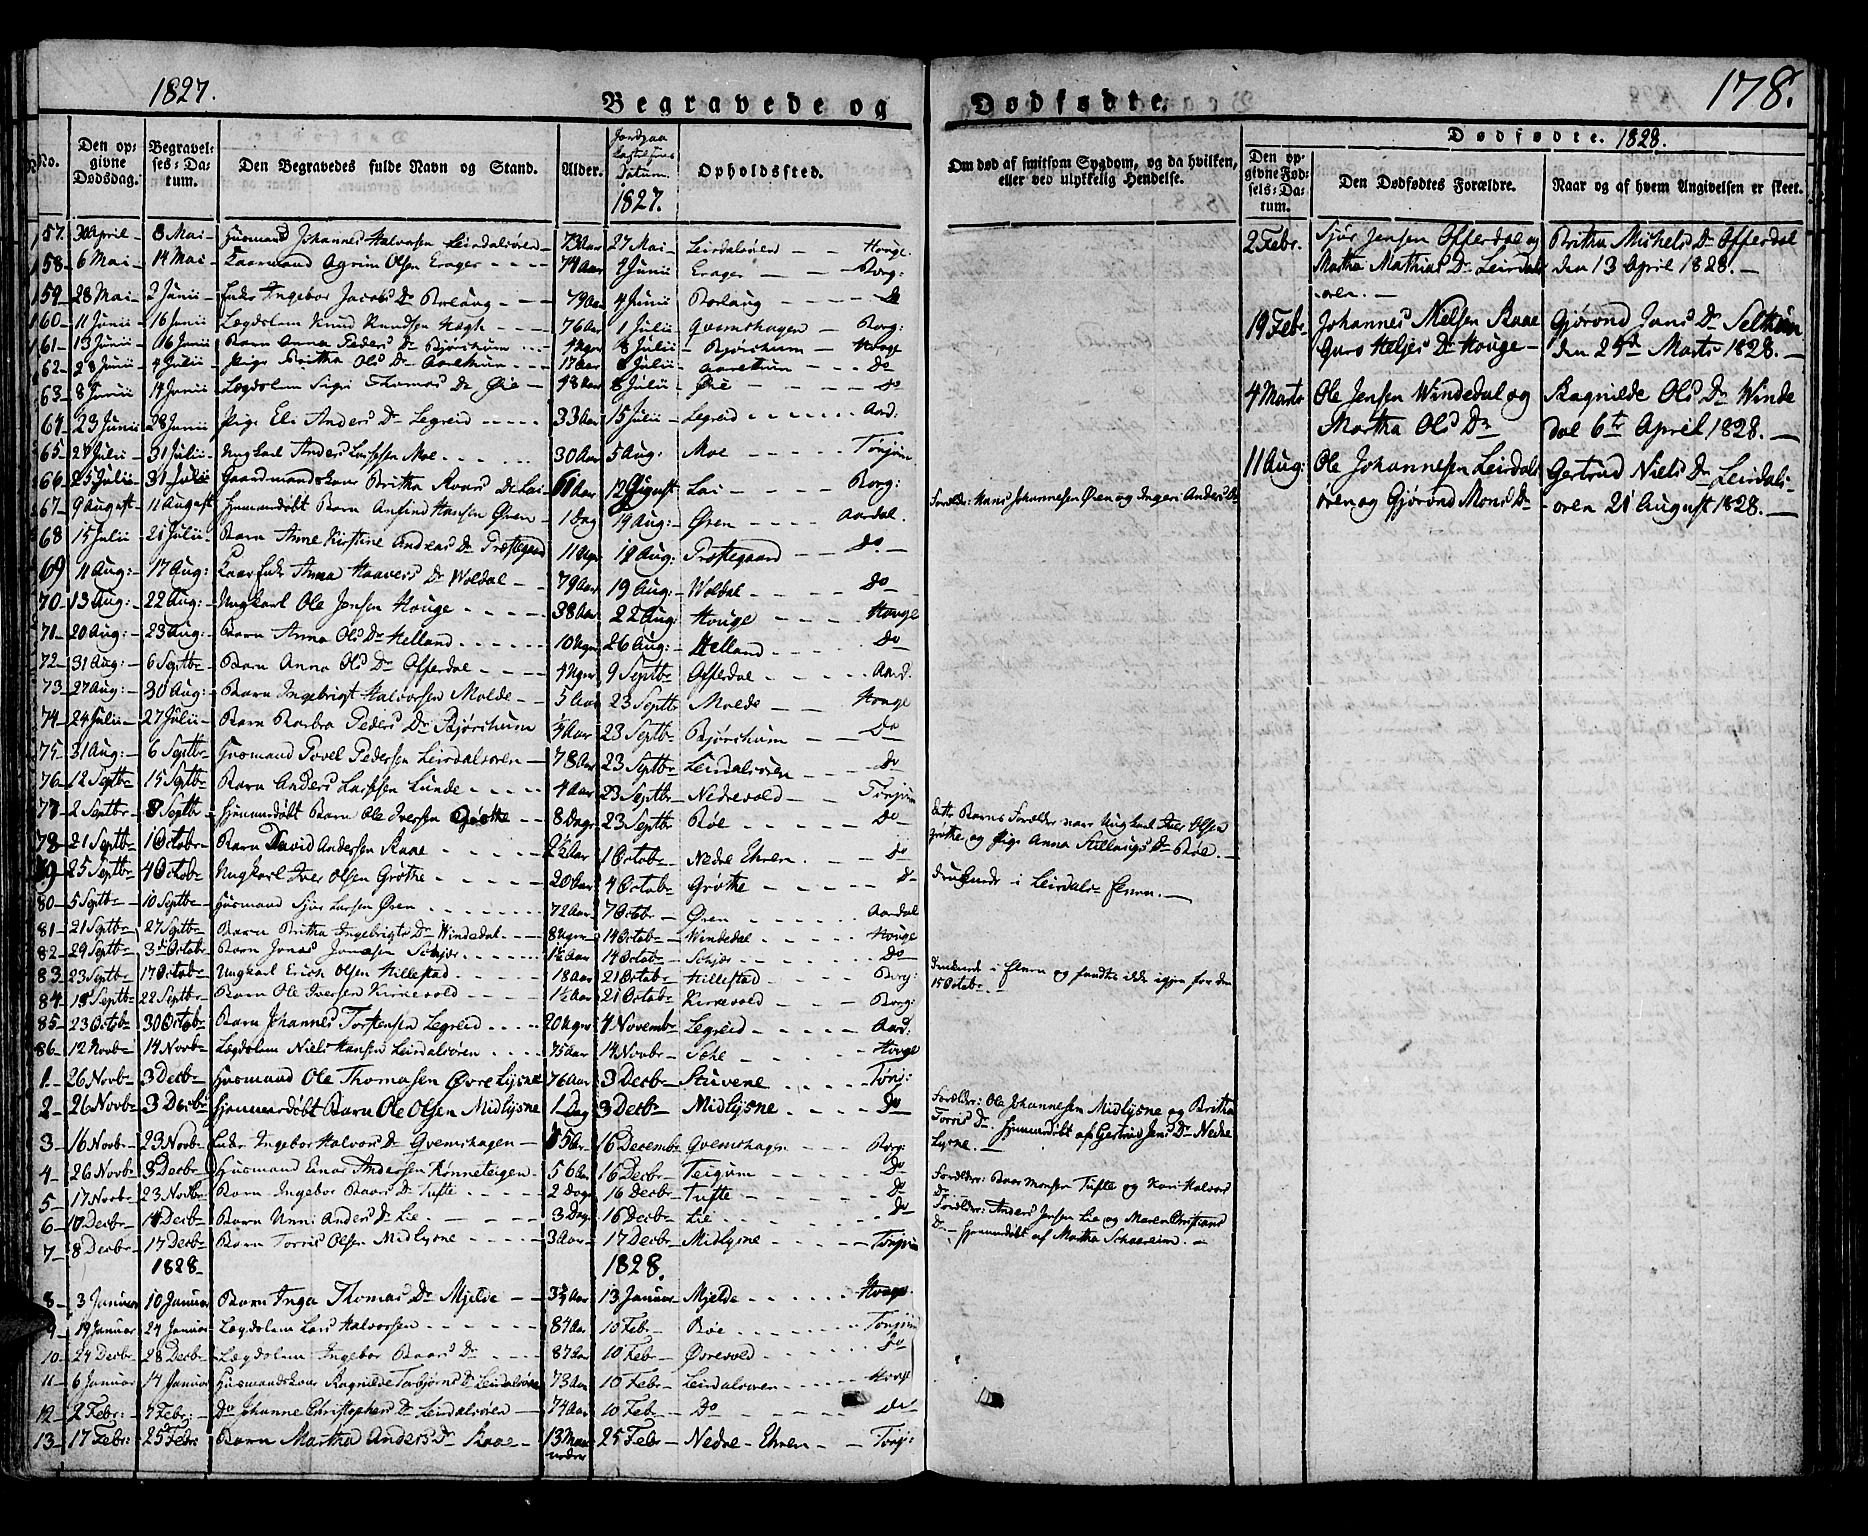 1827.
Begravede og
Dødfødte.
178.
No.
Den op-
givne
Dødsdag.
Begravel-
ses-Da-
tum.
Den Begravedes fulde Navn og Stand.
Alder.
Jordpaa
Datum
1827.
Opholdssted.
Om død af smitsom Sygdom, og da hvilken,
eller ved ulykkelig Hendelse.
Dødfødte. 1828.
Den op-
givne Fød-
sels-Da-
tum.
Den Dødfødtes Forældre.
Naar og af hvem Angivelsen er skeet.
57. April - 8 Mai - Huusmand Johannes Halvorsen Leirdalsören - 73 Aar 27 Mai - Leirdalsören - Houge.
58 - 6 Mai - 14 Mai - Olsen Erager - 74 Aar Junii - Erager - Borg:
59 - 28 Mai - 2 Junii - Enke Ingebor Jacobs Dr Borlaug - 79 Aar 4 Junii - Borlaug - Do
60 - 11 Junii - 16 Junii - Lægdslem Knud Knudsen Hægh - 76 Aar 1 Julii - Qvemshagen - Borg:
61 - 13 Junii - 16 Junii - Barn Anna Peders Dr Bjørchum - 8 Julii - Bjørchum - Houge
62 - 28 Junii - 4 Julii - Pige Britha Ols Dr - 17 Aar 8 Julii - Do
63 - 8 Junii - 14 Junii - Lægdslem Sigri Thomas Dr Øie - 48 Aar 8 Julii - Øie - Do
64 - 23 Junii - 28 Junii - Pige Eli Anders Dr Legreid - 33 Aar 15 Julii - Legreid - Aard:
65 - 27 Julii - 31 Julii - Ungkarl Anders Larssen Moe - 30 Aar 5 Aug: - Moe - Tönjum
66 - 25 Julii - 31 Julii - Gaardmandskone Britha Dr Lai - Aar 12 August - Lai - Borg:
67 - 9 August - 11 August Hjemmedøbt Barn Anfind Hansen Øren - 1 Dag 19 Aug: - Øren - Aardal. Forældre: Hans Johannesen Øren og Ingeri Anders Dr
68 - 15 Julii - 21 Julii - Barn Anne Kirstine Andreas Dr Præstegaard 11 Uger Aug: - Præstegaard - Do -
69 - 11 Aug: - 17 Aug: - Enke Anna Haavers Dr Woldal - 79 Aar 19 Aug: - Woldal - Do
70 - 13 Aug: - 22 Aug: - Ungkarl Ole Jensen Houge - 38 Aar 22 Aug: Houge - Houge
71 - 20 Aug: - 23 Aug: - Barn Anna Ols Dr Helland - 10 Uger 26 Aug: - Helland - Do
72 - 31 Aug: - 6 Septbr - Barn Anna Ols Dr Offerdal - 4 Uger 9 Septbr - Offerdal - Aard.
73 - 27 Aug: - 30 Aug: - Barn Ingebrigt Halvorsen Molde - 5 Aar 23 Septbr Molde - Houge
74 - 24 Julii - 27 Julii - Barn Barbro Peders Dr Bjørchum - Aar 23 Septbr - Bjørchum - Do
75 - 31 Aug: - 6 Septbr - Huusmand Povel Pedersen Leirdalsören - 78 Aar 23 Septbr - Leirdalsören - Do
76 - 12 Septbr - 15 Septbr - Barn Anders Larssen Lunde - 4 Aar 23 Septbr - Nedrevold - Tönjum
77 - 2 Septbr - 8 Septbr - Hjemmedøbt Barn Ole Iversen Grøthe - 8 Dage 23 Septbr Røe - Do - dette Barns Forældre vare Ungkarl Iver Olsen
Grøthe og Pige Anna Dr Røe. -
78 - 21 Septbr - 1 Octobr - Barn David Andersen Raae - 2½ Aar 1 Octobr - Nedre Ehren. - Do
79 - 25 Septbr - 4 Octobr - Ungkarl Iver Olsen Grøthe - 20 Aar 4 Octobr - Grøthe - Do - druknede i Leirdals Elven. -
80 - 5 Septbr - 10 Septbr - Huusmand Sjur Larsen Øren - 72 Aar 7 Octbr - Øren - Aardal
81 - 21 Septbr - 27 Septbr - Barn Britha Ingebrigts Dr Windedal - 8 Uger 14 Octobr - Windedal - Houge
82 - 29 Septbr - 3d Octobr Barn Jonas - 1½ Aar 14 Octobr - - Do
83 - 23 Septbr - 17 Octobr - Ungkarl Erich Olsen Hillestad - 18 Aar 21 Octobr - Hillestad - Borg: druknede i Elven og fandtes ikke igjen før den
15 Octobr. -
84 - 18 Septbr - 22 Septbr - Barn Ole Iversen Kirkevold - 1½ Aar 21 Octobr - Kirkevold - Borg:
85 - 23 Octobr - 30 Octobr - Barn Johannes Torstensen Legreid - 20 Uger 4 Novembr - Legreid - Aard:
86 - 12 Novbr - 14 Novbr - Lægdslem Niels Hansen Leirdalsören - 75 Aar 14 Novbr - - Houge
1 - 26 Novbr - 3 Decbr - Huusmand Ole Thomasen Øvre Lysne 76 Aar 3 Decbr - Stuvene - Tönj:
2 - 26 Novbr - 3 Decbr - Hjemmedøbt Barn Ole Olsen Midlysne 1 Dag 3 Decbr - Midlysne - Do Forældre: Ole Johannesen Midlysne og Britha
Torris Dr. Hjemmedøbt af Gertrud Jens Dr Nedre
Lysne. -
3 - 16 Novbr - 23 Novbr - Enke Ingebor Halvors Dr Qvemshagen - Aar - 16 Decembr - Qvemshagen - Borg:
4 - 26 Novbr - 3 Decbr - Huusmand Einar Andersen Rönneteigen - 56 Aar 16 Decbr - Teigum - Do
5 - 17 Novbr - 23 Novbr - Barn Ingebor Baars Dr Tufte - 2 Dage 16 Decbr - Tufte - Do Forældre: Baar Monsen Tufte og Kari Halvors
Dr -
6 - 17 Decbr - Decbr - Barn Unni Anders Dr Lie - 3 Dage 16 Decbr - Lie - Do Forældre: Anders Jensen Lie og Maren Christians
Dr - Hjemmedøbt af Martha -
7 - 8 Decbr - 17 Decbr - Barn Torris Olsen Midlysne - 3 Aar - 17 Decbr - Midlysne - Tönjum
1828 - 1828.
8 - 3 Januar 10 Januar Barn Inga Thomas Dr Mjelde - Aar 13 Januar - Mjelde - Houge.
9 - 19 Januar 24 Januar Lægdslem Lars Halvorsen - 84 Aar 10 Febr - Røe - Tönjum
10 - 24 Decbr - 28 Decbr - Lægdslem Ingebor Baars Dr - 87 Aar 10 Febr - Øvrevold - Do
11 - 6 Januar 14 Januar Huusmandskone Ragnilde Torbjørns Dr Leirdalsören 73 Aar 10 Febr - Leirdalsören - Houge
12 - 2 Febr: - 7 Febr: - Do Johanne Christophers Dr Leirdalsören - 74 Aar 10 Feb - Do - Do
13 - 17 Febr: - 25 Febr Barn Martha Anders Dr Raae - 13 Maa-
neder 25 Febr - Nedre - Ehren - Tönj:
2 Febr. Sjur Jensen Offerdal og
Martha Mathias Dr Leirdals-
ören. -
Britha Michels Dr Offerdal
den 13 April 1828. -
19 Febr. Johannes Nielsen Raae
Guro Helges Dr Houge -
Gjørond Jons Dr Seltun
den 25d Marts 1828. -
4 Marts Ole Jensen Windedal og
Martha Ols Dr
Ragnilde Ols Dr Winde
dal 6te April 1828. -
11 Aug: Ole Johannesen Leirdals
ören og Gjørond Mons Dr
Gertrud Niels Dr Leirdals-
ören 21 August 1828. -